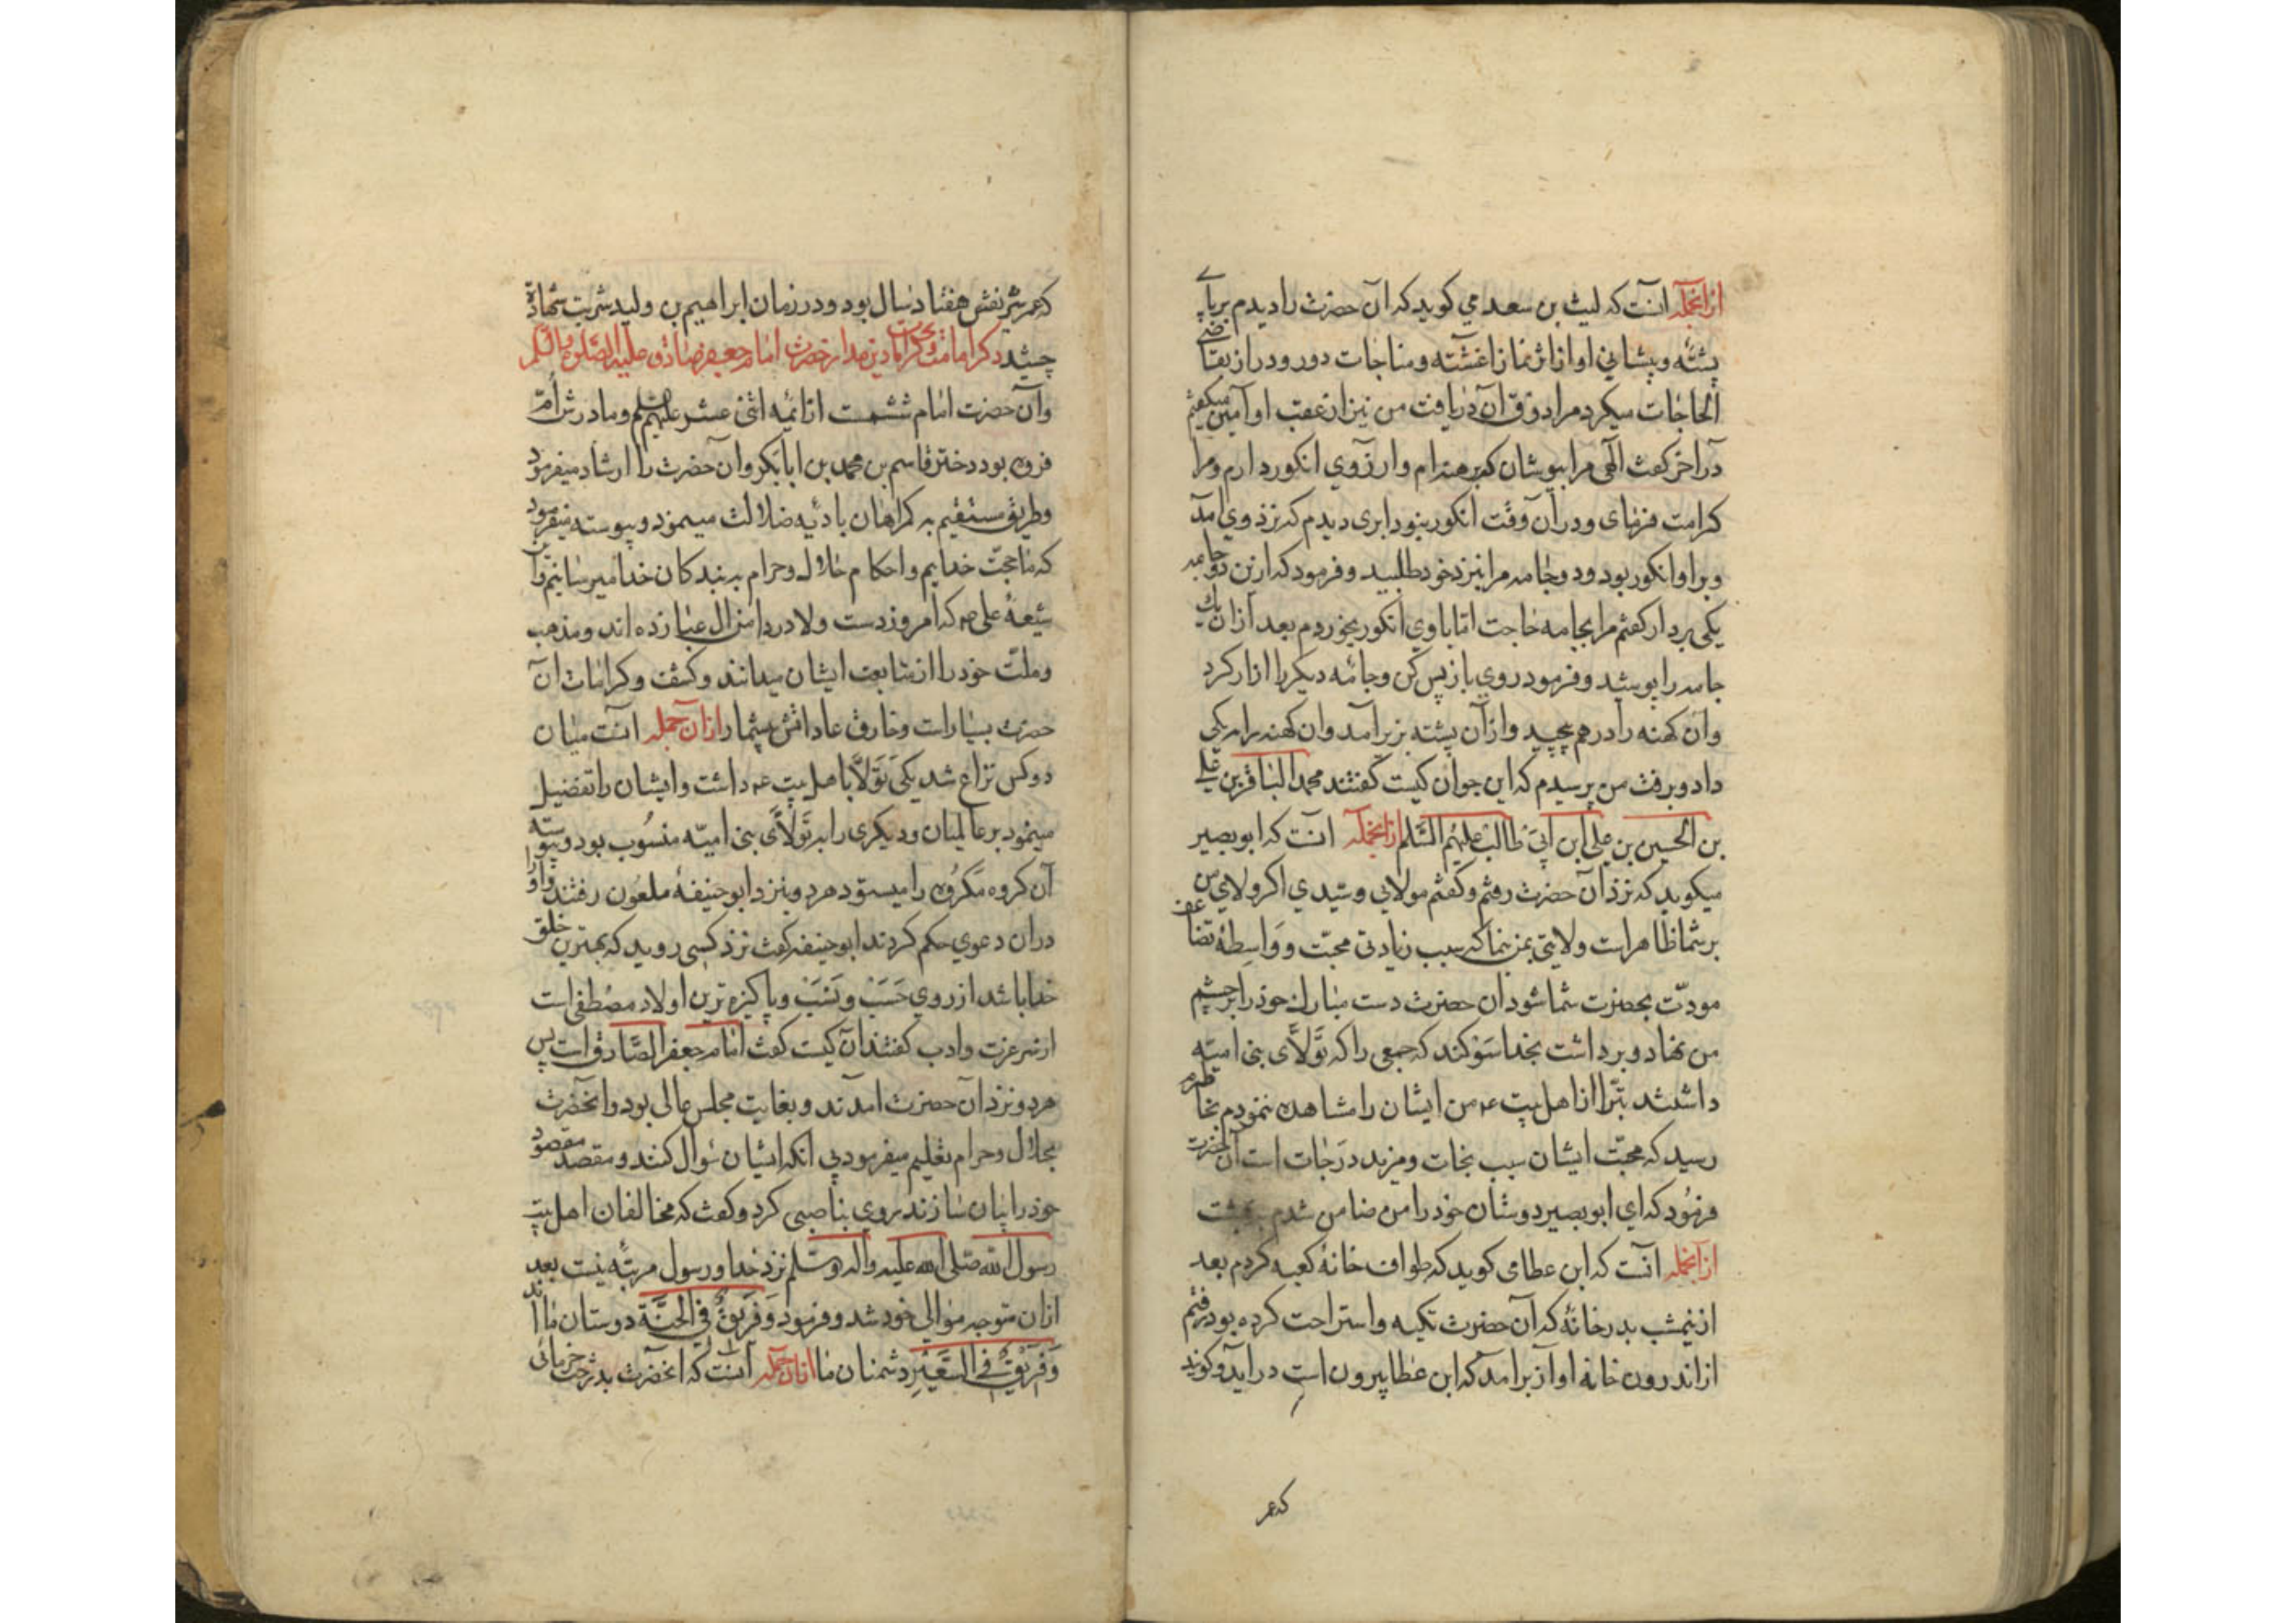 ازانجمله آنست که لیث بن سعد می کوید که آن حضرت را دیدم بر بالای
پشته و پیشانی او از اثر نماز اغشته و مناجات دور و دراز بقاضی
الحاجات میکرد مرا ذوق آن دریافت من نیز از عقب او آمین میکفتم
در آخر کفت الهی مرا بپوشان که برهنه ام و آرزوی انکور دارم و مرا
کرامت فرمای و در آن وقت انکور نبود ابری دیدم که نزد وی آمد
و برا و انکور بود و دو جامه مرا نیز نزد خود طلبید و فرمود که از این دو جامه
یکی بردار کفتم مرا بجامه حاجت اما با وی انکور بخوردم بعد از آن یک
جامه را پوشید و فرمود روی باز پس کن و جامه دیکر را ازار کرد
و ان کهنه را درهم پیچید و از آن پشته بزیر آمد و ان کهنه را به یکی
داد و برفت من پرسیدم که این جوان کیست کفتند محمد الباقر بن علی
بن الحسین بن علی ابن ابی طالب علیهم السلم ازانجمله آنست که ابو بصیر
میکوید که نزد آن حضرت رفتم و کفتم مولای و سیدی اکر ولای من
بر شما ظاهر است ولایتی بمن بنما که سبب زیادتی محبت و واسطه تضاعف
مودت بحضرت شما شود ان حضرت دست مبارک خود را بر چشم
من نهاد و برداشت بخدا سوکند که جمعی را که تولای بنی امیه
داشتند تبرا از اهل بیت ع من ایشان را مشاهده نمودم بخاطرم
رسید که محبت ایشان سبب نجات و مزید درجات است آن حضرت
فرمود که ای ابو بصیر دوستان خود را من ضامن شدم به بهشت
ازانجمله آنست که ابن عطا می کوید که طواف خانه کعبه کردم بعد
از نیمشب بدر خانه که آن حضرت تکیه و استراحت کرده بود رفتم
از اندرون خانه اواز برآمد که ابن عطا بیرون است در آید و کویند
که عمر
که عمر شریفش هفتاد سال بود و در زمان ابراهیم بن ولید شربت شهادة
چشید ذکر امامت و کرامات حضرت امام جعفر صادق علیه الصلوة والسلم
و آن حضرت امام ششمست از ائمه اثنی عشر علیهم السلم و مادرش ام
فروه بود دختر قاسم بن محمد بن ابابکر و ان حضرت را ارشاد میفرمود
و طریق مستقیم به کمراهان بادیه ضلالت مینمود و پیوسته میفرمود
که ما حجت خدایم و احکام حلال و حرام به بندکان خدا میرسانیم و این
شیعه علی ع که امروز دست ولا در دامن ال عبا زده اند و مذهب
و ملت خود را از متابعت ایشان میدانند و کشف و کرامات آن
حضرت بسیار است و خارق عاداتش بیشمار ازان جمله آنست میان
دو کس نزاع شد یکی تولا باهل بیت ع داشت و ایشان را تفضیل
مینمود بر عالمیان و دیکری را بر تولای بنی امیه منسوب بود و پیوسته
آن کروه مکروه را میستود هر دو بنزد ابو حنیفه ملعون رفتند و او را
در ان دعوی حکم کردند ابو حنیفه کفت نزد کسی روید که بهترین خلق
خدا باشد از روی حسب و نسب و پاکیزه ترین اولاد مصطفی است
از سر عزت و ادب کفتند آن کیست کفت امام جعفر الصادق است پس
هر دو نزد آن حضرت آمدند و بغایت مجلس عالی بود و انحضرت
بحلال و حرام تعلیم میفرمود بی انکه ایشان سوال کنند و مقصد مقصود
خود را بیان سازند روی بناصبی کرد و کفت که مخالفان اهل بیت
رسول الله صلی الله علیه واله وسلم نزد خدا و رسول مرتبه نیست بعد
ازان متوجه موالی خود شد و فرمود و فریق فی الجنة دوستان ما اند
و فریق فی السعیر دشمنان ما ازان جمله آنست که انحضرت بدرخت خرمائی